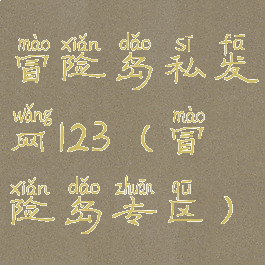 mào xiǎn dǎo sī fā
冒险岛私发
wǎng mào
网123（冒
xiǎn dǎo zhuān qū
险岛专区）